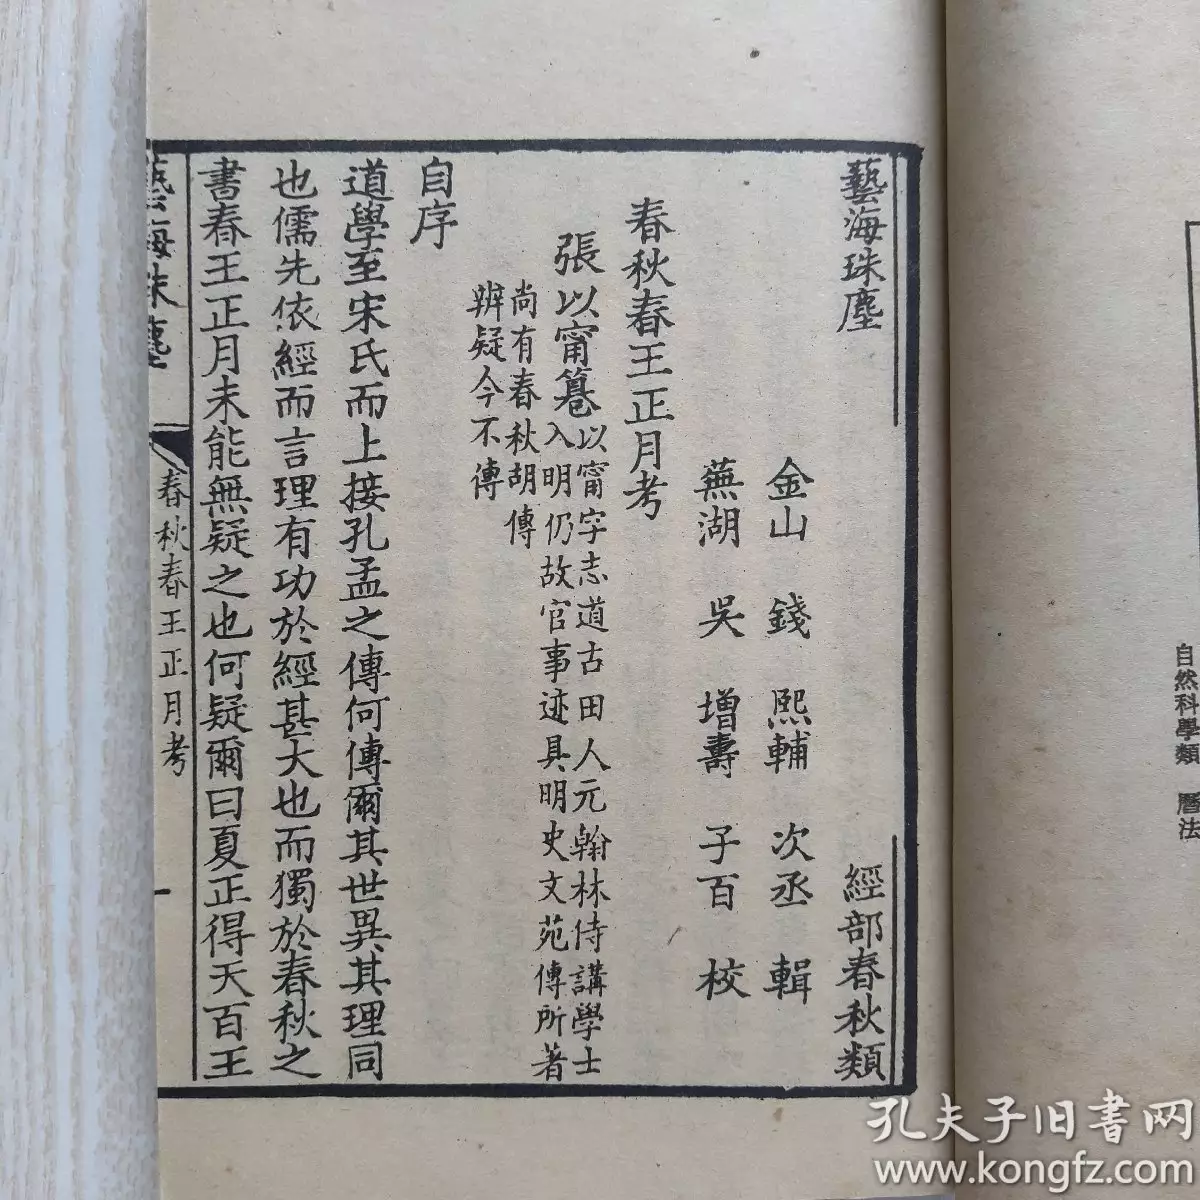 自然科學類 曆法
藝海珠塵 經部春秋類
金山 錢 熙輔 次丞 輯
蕪湖 吳 增壽 子百 校
春秋春王正月考
張以甯篹 以甯字志道古田人元翰林侍講學士
入明仍故官事迹具明史文苑傳所著
尚有春秋胡傳
辨疑今不傳
自序
道學至宋氏而上接孔孟之傳何傳爾其世異其理同
也儒先依經而言理有功於經甚大也而獨於春秋之
書春王正月未能無疑之也何疑爾曰夏正得天百王
藝海珠塵 春秋春王正月考 一
孔夫子旧书网
www.kongfz.com